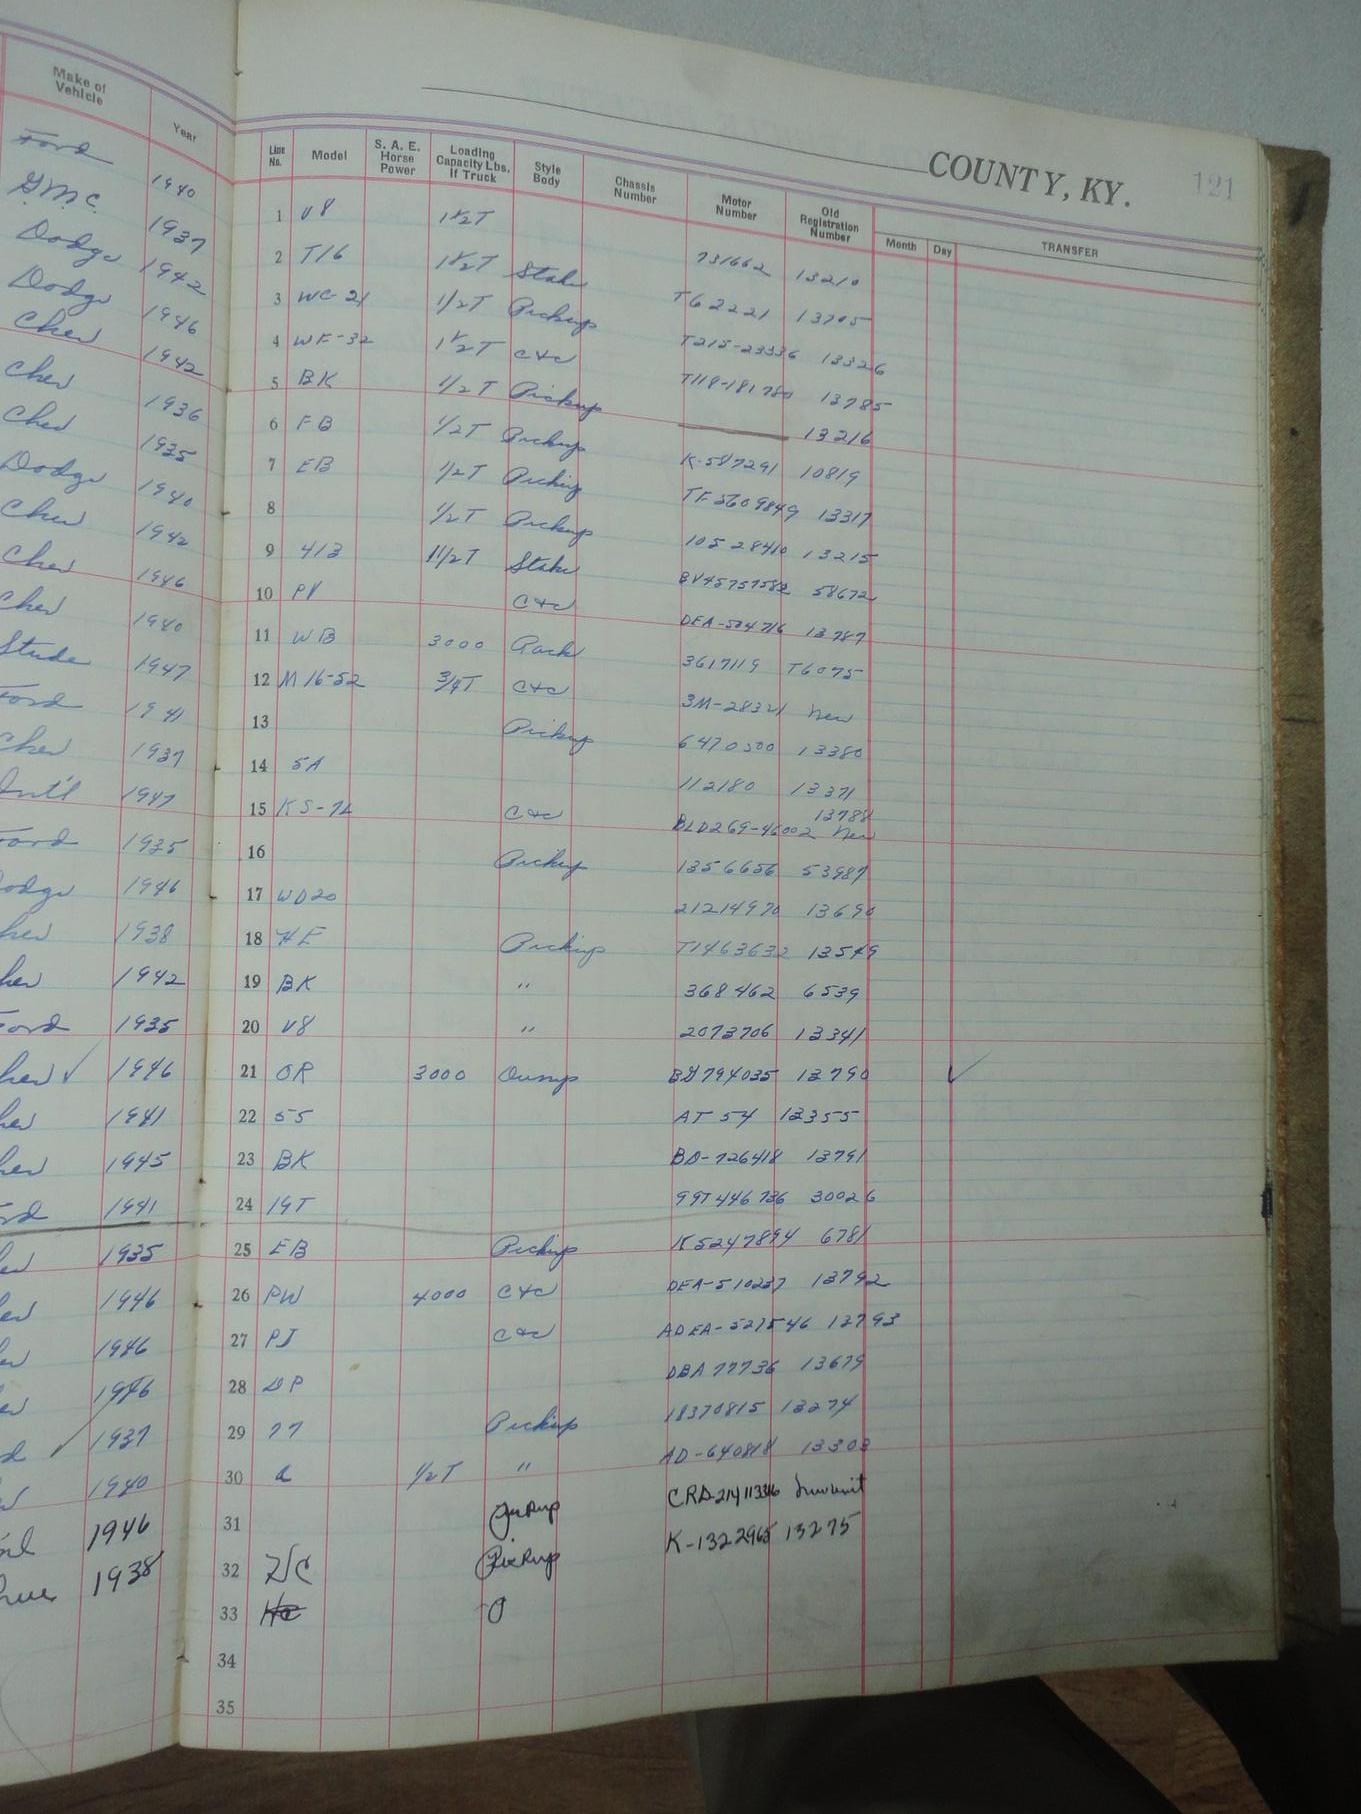 COUNTY, KY. 121
Make of Vehicle Year Line No. Model S. A. E. Horse Power Loading Capacity Lbs. If Truck Style Body Chassis Number Motor Number Old Registration Number Month Day TRANSFER
Ford 1940 1 V8 1½T 731662 13210
G.M.C. 1937 2 T16 1½T Stake T62221 13705
Dodge 1942 3 WC-21 1/2T Pickup T215-23336 13326
Dodge 1946 4 WF-32 1½T C&C T118-181780 13785
Chev 1942 5 BK 1/2T Pickup 13216
Chev 1936 6 FB 1/2T Pickup K-587291 10819
Chev 1935 7 EB 1/2T Pickup TF5609849 13317
Dodge 1940 8 1/2T Pickup 10528410 13215
Chev 1942 9 413 1 1/2T Stake BV45757582 58672
Chev 1946 10 PV C&C DEA-504716 13787
Chev 1940 11 WB 3000 Rack 3617119 T6075
Stude 1947 12 M16-52 3/4T C&C 3M-28321 New
Ford 1941 13 Pickup 6470500 13380
Chev 1937 14 5A 112180 13371
Int'l 1947 15 KS-7L C&C BLD269-46002 13788 New
Ford 1935 16 Pickup 1356656 53987
Dodge 1946 17 WD20 21214970 13690
her 1938 18 HE Pickup T1463632 13549
her 1942 19 BK " 368462 6539
Ford 1935 20 V8 " 2073706 13341
her ✓ 1946 21 OR 3000 Dump 13790 ✓
her 1941 22 55 AT 54 13355
her 1945 23 BK BD-726418 13791
rd 1941 24 19T 99T446736 30026
1935 25 EB Pickup K5247894 6781
1946 26 PW 4000 C&C DEA-510237 13792
1946 27 PJ C&C ADEA-527546 13793
1946 28 DP DBA77736 13679
d 1937 29 77 Pickup 18370815 13274
1940 30 a 1/2T " AD-640818 13303
1946 31 Pickup
1938 32 HC Pickup K-1322965 13275
33
34
35